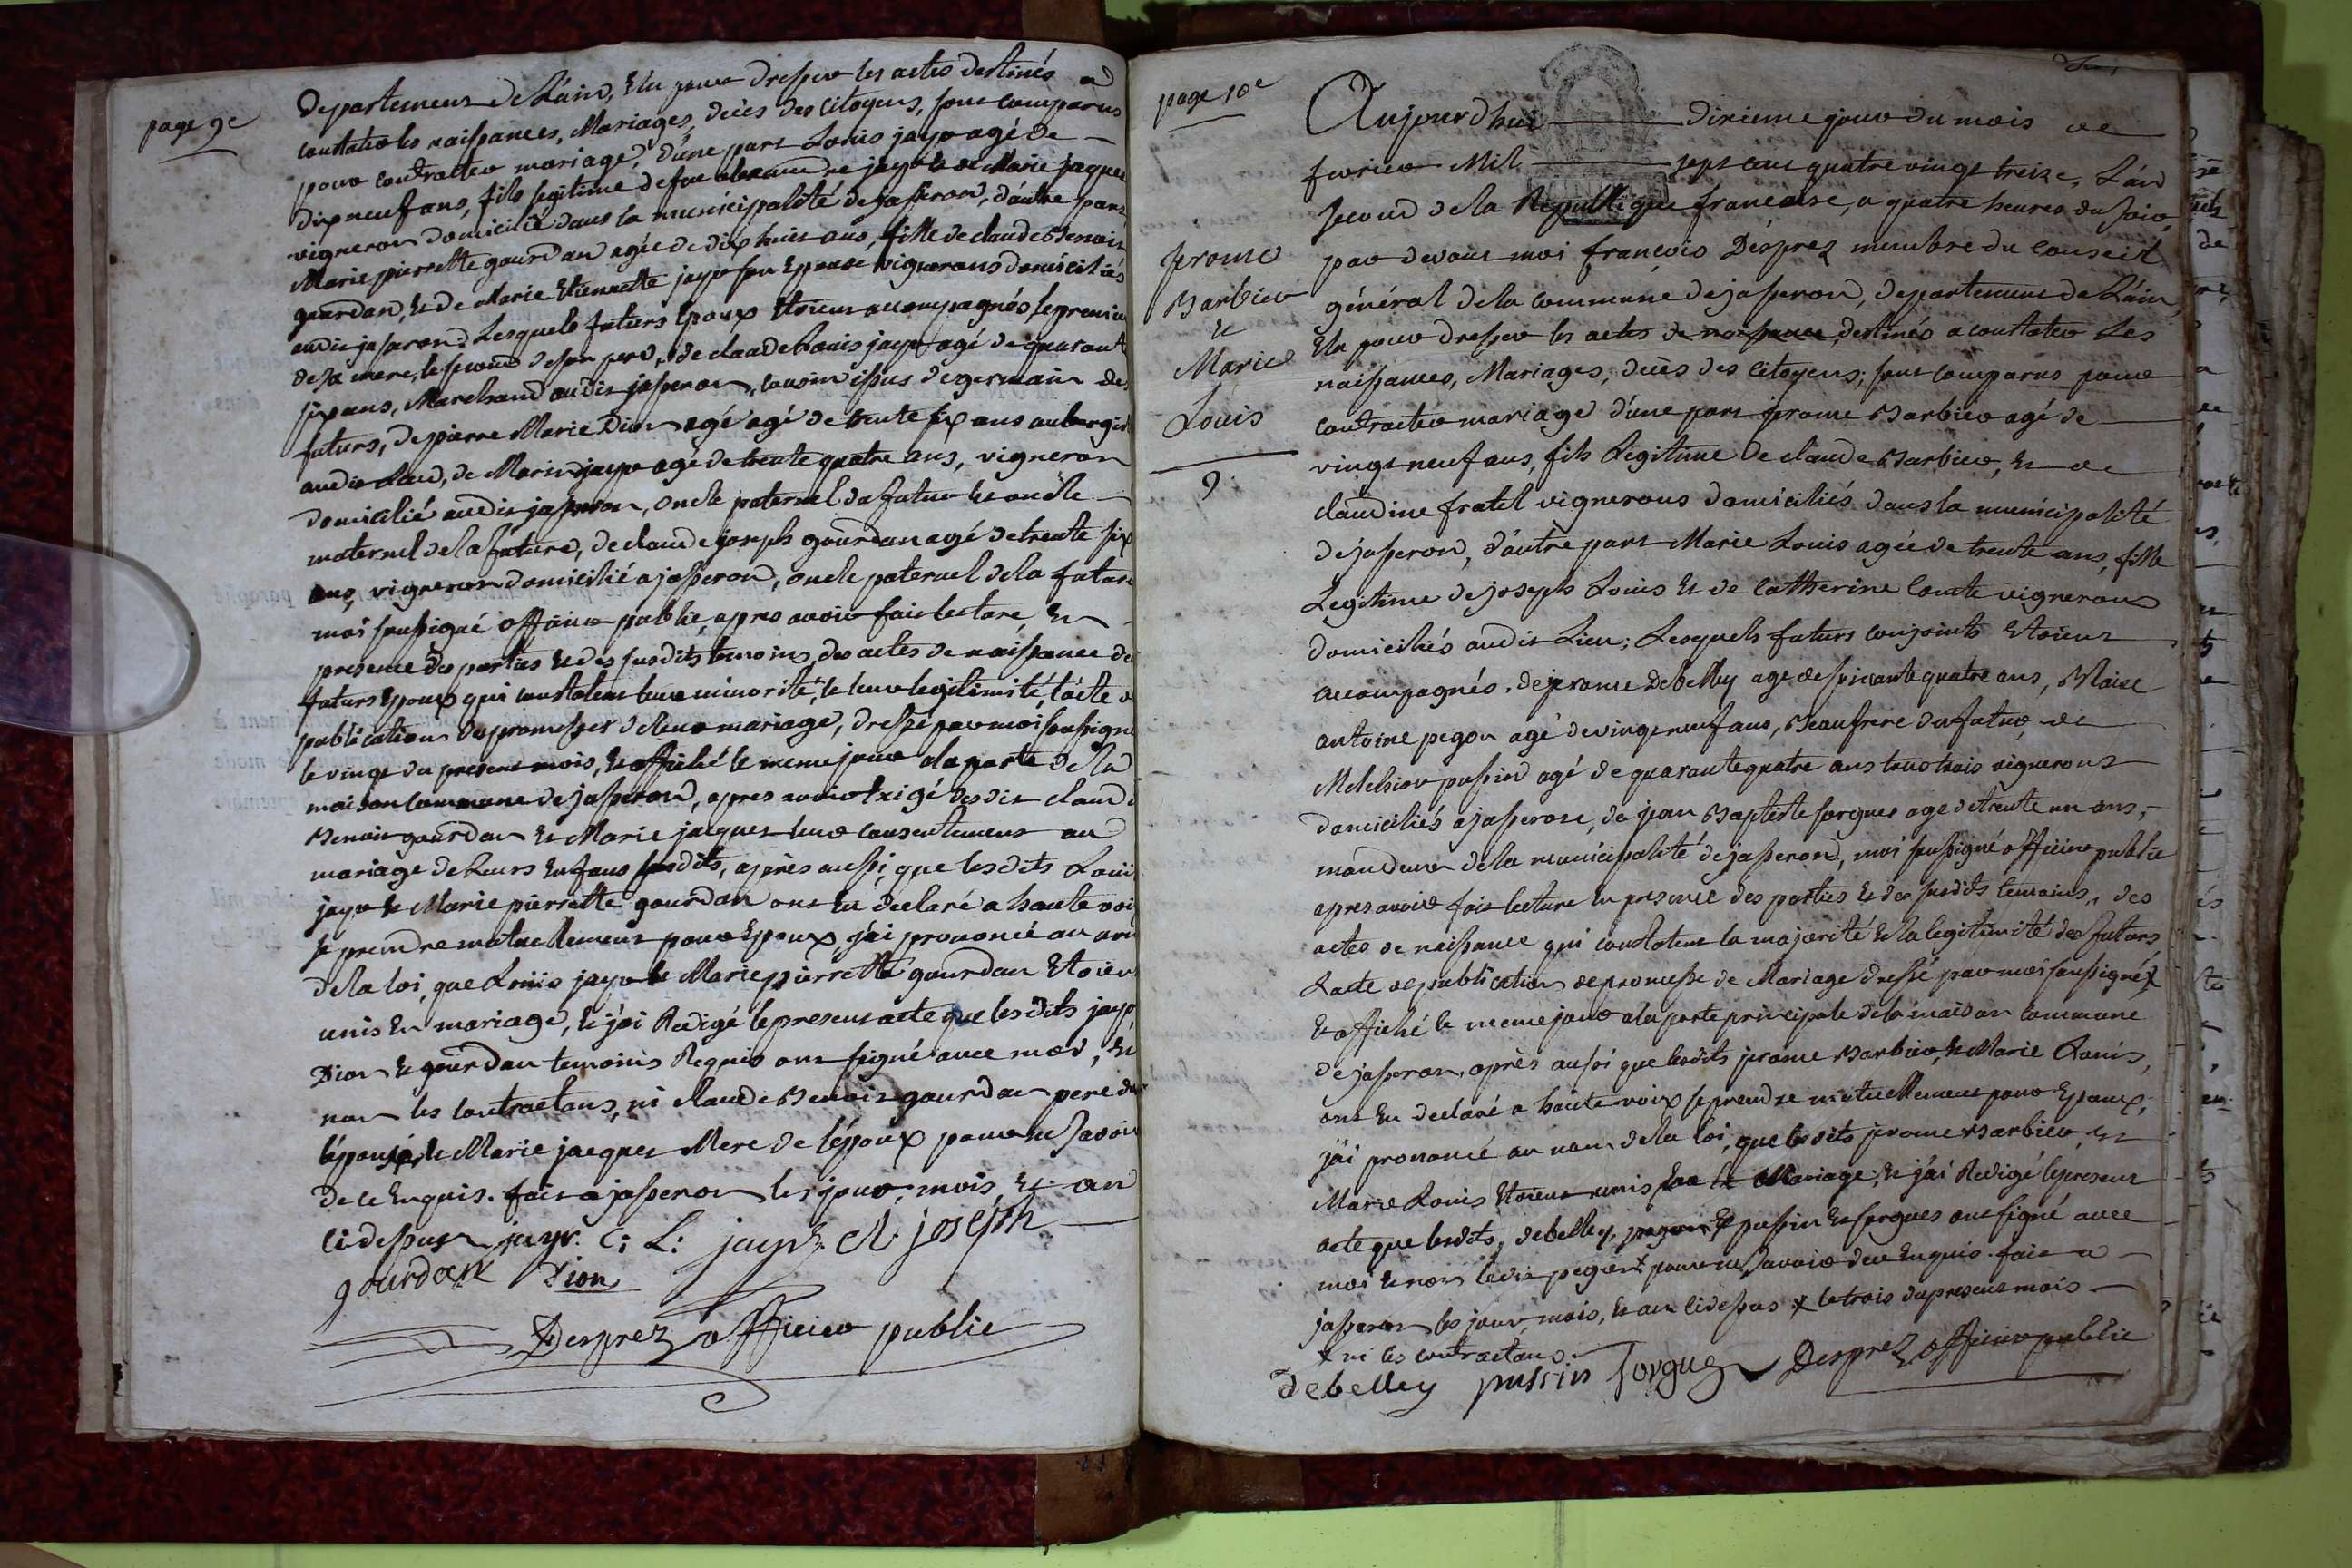 page 9e
departement de L'ain, Elu pour dresser les actes destinés a
constater les naissances, Mariages, décès des citoyens, sont comparus
pour contracter mariage, d'une part Louis jayr agé de
dix neuf ans, fils legitime de feu jayr et de Marie jaques
vigneron domicilié dans la municipalité de jasseron, d'autre part
Marie pierrette gourdan agée de dix huit ans, fille de claude Benoit
gourdan, et de Marie Etiennette jayr son Epouse vignerons domiciliés
audit jasseron Lesquels futurs Epoux Etoient accompagnés le premier
de sa mere, le second de son pere, de claude Louis jayr agé de quarante
six ans, Marchand audit jasseron, cousin issus de germain des
futurs, de pierre Marie Dion agé agé de trente six ans aubergiste
audit Lieu, de Marin jayr agé de trente quatre ans, vigneron
domicilié audit jasseron, oncle paternel du futur et oncle
maternel de la future, de claude joseph gourdan agé de trente six
ans, vigneron domicilié a jasseron, oncle paternel de la future
moi soussigné officier public, apres avoir fait lecture, En
presence des parties et des susdits temoins, des actes de naissance des
futurs Epoux qui constatent leur minorité, et leur legitimité, l'acte de
publication des promesses de leur mariage, dressé par moi soussigné
le vingt du present mois, et affiché le meme jour a la porte de la
maison commune de jasseron, apres avoir Exigé desdit claude
Benoit gourdan et Marie jacques leur consentement au
mariage de Leurs Enfans susdits, après aussi, que lesdits Louis
jayr et Marie pierrette gourdan ont Eu declaré a haute voix
se prendre mutuellement pour Epoux, j'ai prononcé au nom
de la loi, que Louis jayr et Marie pierrette gourdan Etoient
unis En mariage, et j'ai Redigé le present acte que lesdits jayr,
Dion et gourdan temoins Requis ont signé avec moi, et
non les contractans, ni claude Benoit gourdan pere de
l'épouse, et Marie jacques Mere de l'époux pour ne savoir
de ce Enquis. fait a jasseron les jour, mois, et an
ci dessus jayr. C: L: jayr cl joseph
gourdan Dion
Desprez officier public
page 10e
jerome
Barbier
et
Marie
Louis
9
Aujourdhui dixieme jour du mois de
fevrier Mil sept cent quatre vingt treize, L'an
second de la Republique francaise, a quatre heures du soir
par devant moi françois Desprez membre du conseil
général de la commune de jasseron, departement de L'ain,
Elu pour dresser les actes de naissance destinés a constater Les
naissances, Mariages, décès des citoyens; sont comparus pour
contracter mariage d'une part jerome Barbier agé de
vingt neuf ans, fils Legitime de claude Barbier, et de
claudine fratel vignerons domiciliés dans la municipalité
de jasseron, d'autre part Marie Louis agée de trente ans, fille
Legitime de joseph Louis et de catherine Comte vignerons
domiciliés audit Lieu; Lesquels futurs conjoints Etoient
accompagnés. de jerome Debelley agé de soixante quatre ans, Blaise
antoine pegon agé de vingt neuf ans, Beaufrere du futur, de
Melchior pussin agé de quarante quatre ans tous trois vignerons
domiciliés a jasseron, de jean Baptiste forgues agé de trente un ans,
mandeur de la municipalité de jasseron, moi soussigné officier public
apres avoir fait lecture En presence des parties et des susdits temoins, des
actes de naissance qui constatent la majorité et la legitimité des futurs,
L'acte de publication de promesse de Mariage dressé par moi soussigné x
et affiché le meme jour a la porte principale de la maison commune
de jasseron, après aussi que lesdits jerome Barbier, et Marie Louis,
ont Eu declaré a haute voix se prendre mutuellement pour Epoux,
j'ai prononcé au nom de la loi, que lesdits jerome Barbier et
Marie Louis Etoient unis En Mariage; et j'ai Redigé le present
acte que lesdits, debelley, pegon et pussin et forgues ont signé avec
moi et non ledit pegon x pour ne savoir de ce Enquis. fait a
jasseron les jour, mois, et an ci dessus x le trois du present mois
x ni les contractans
debelley pussin forgues Desprez officier public